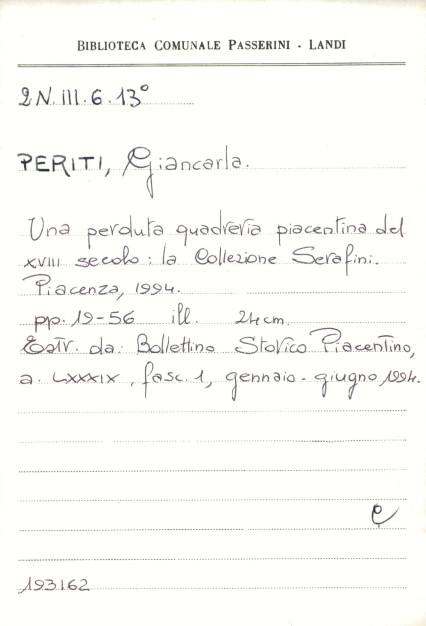 BIBLIOTECA COMUNALE PASSERINI - LANDI
2N.III.6.13°
PERITI, Giancarla.
Una perduta quadreria piacentina del
XVIII secolo: la Collezione Serafini.
Piacenza, 1994.
pp. 19-56 ill. 24 cm.
Estr. da: Bollettino Storico Piacentino,
a. LXXXIX, fasc. 1, gennaio-giugno 1994.
e
193162